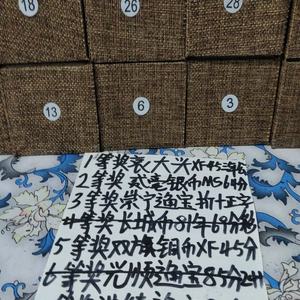 18
26
28
13
6
3
1等奖袁大头XF45三年
2等奖贰毫银币MS64分
3等奖崇宁通宝折十正字
4等奖长城币81年69分
5等奖双旗铜币XF45分
6等奖光绪通宝85分